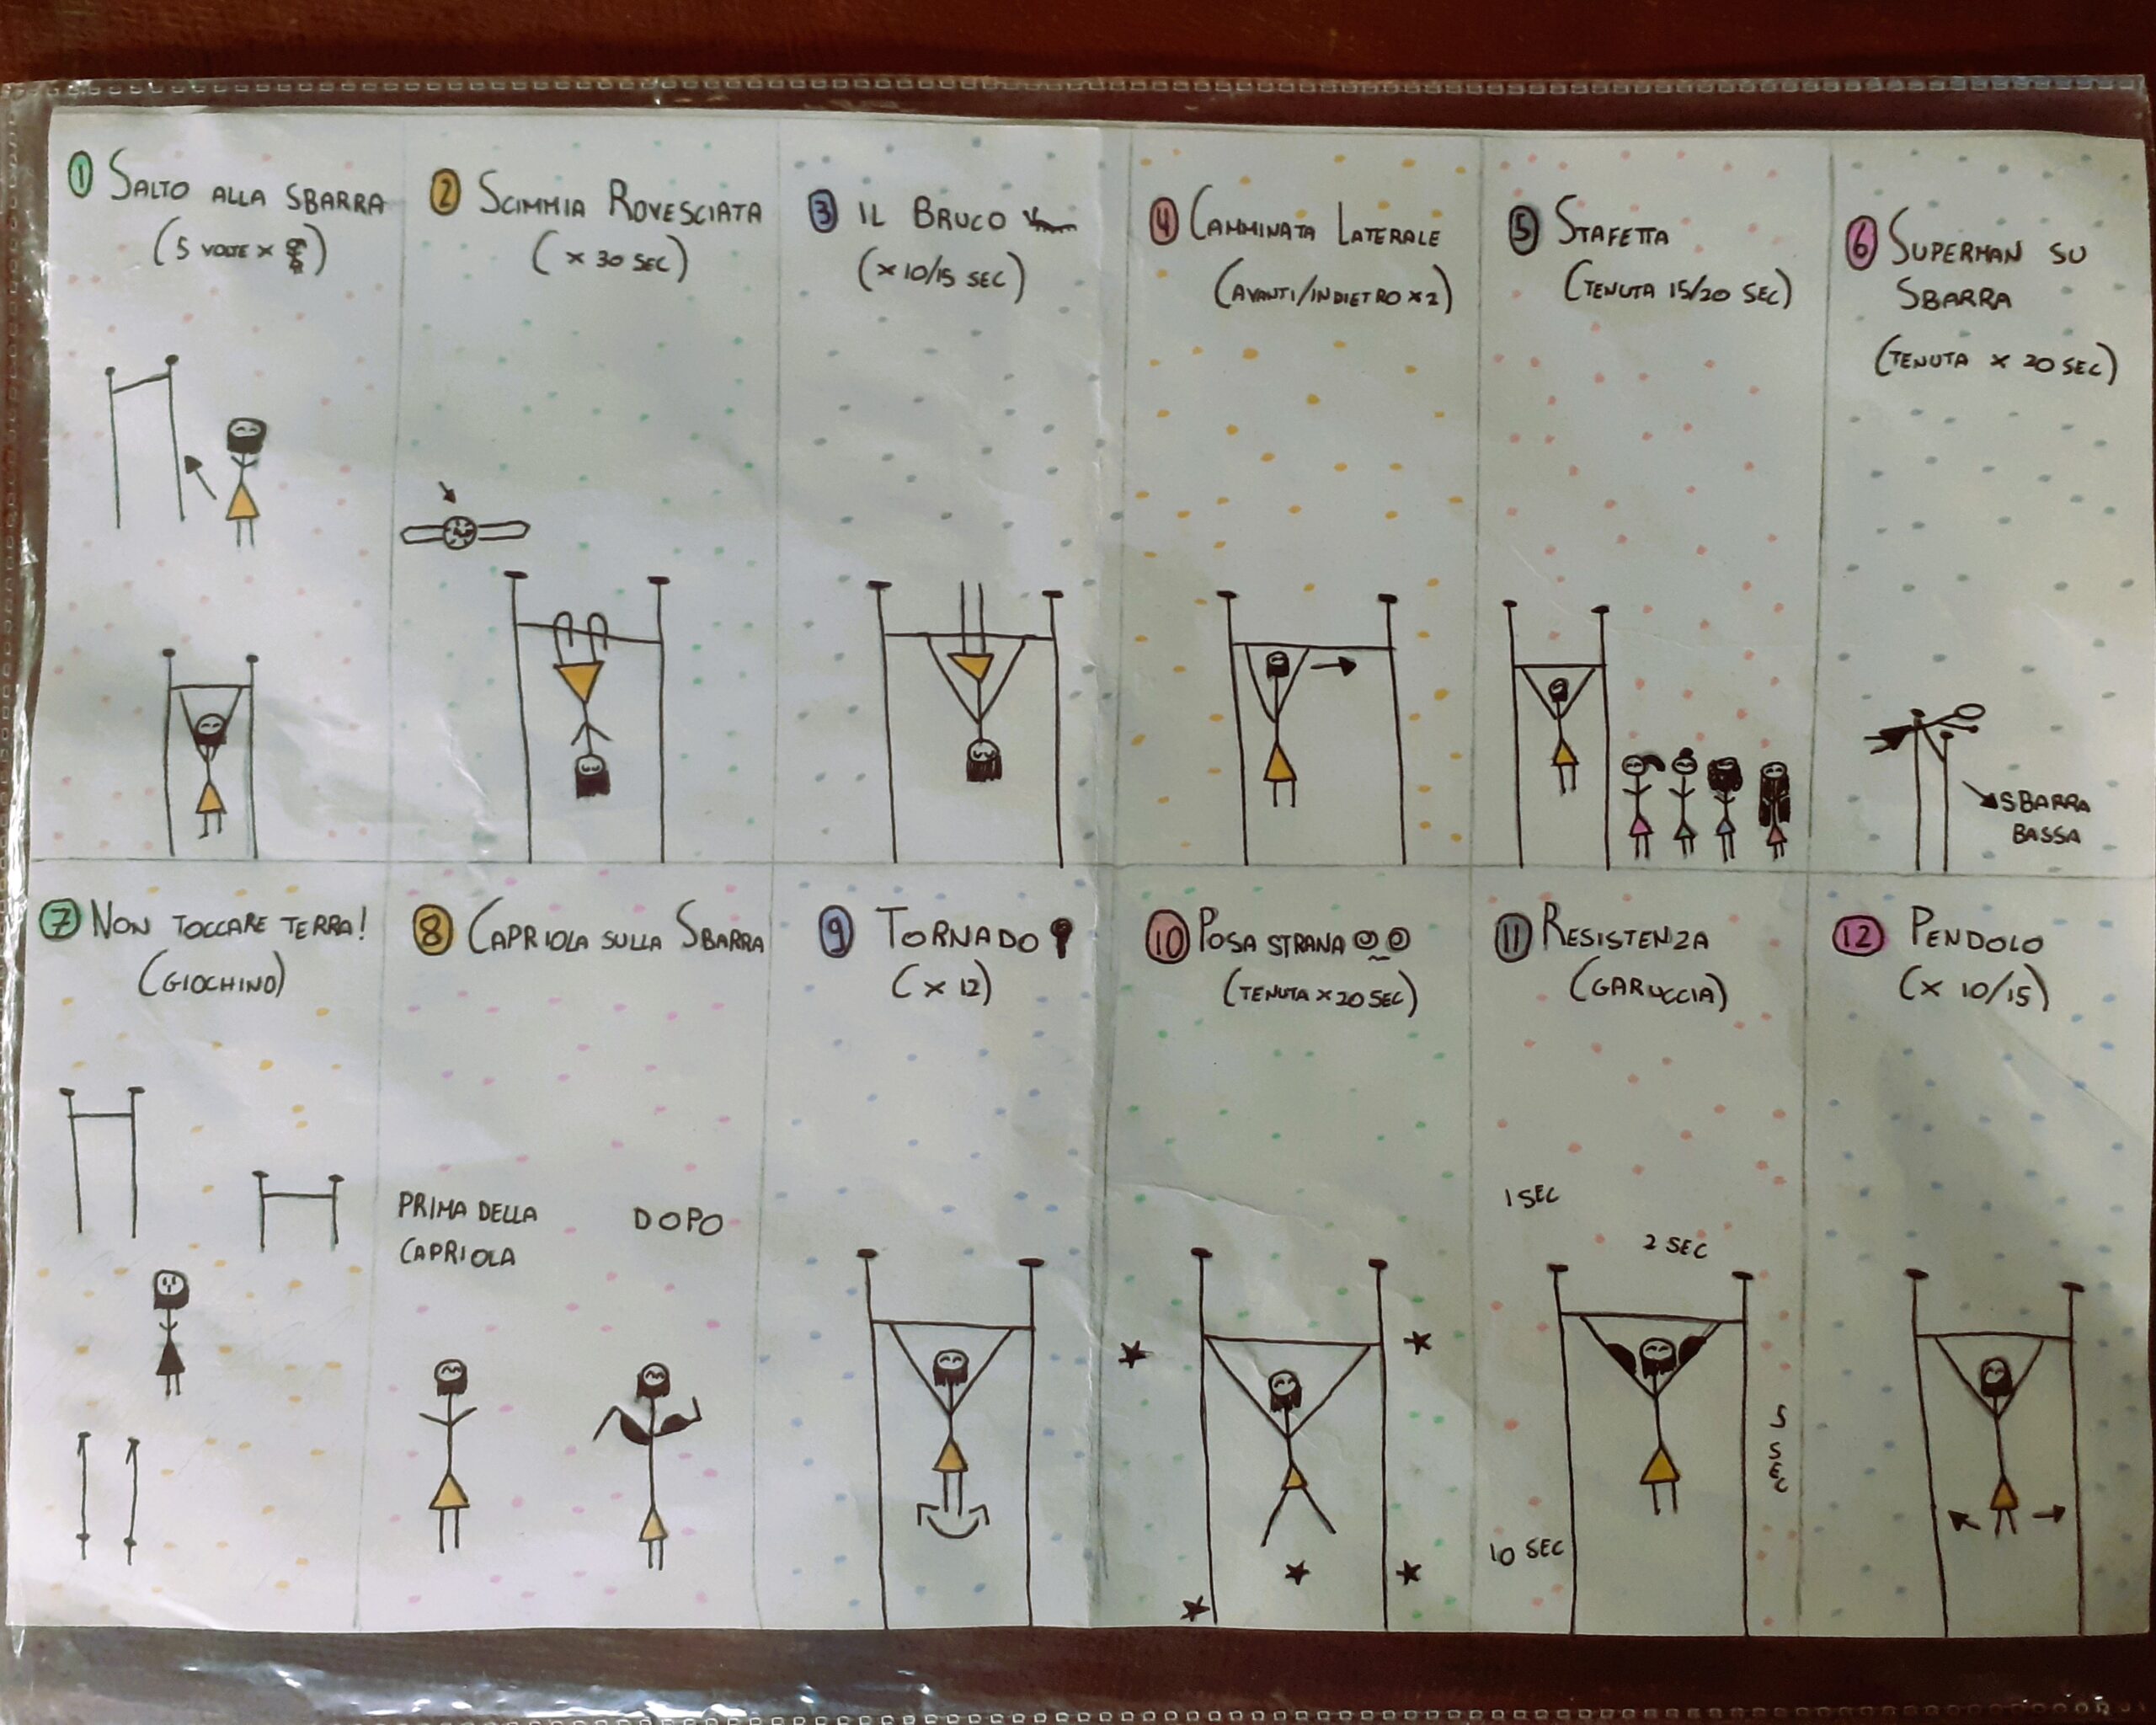 1 SALTO ALLA SBARRA
(5 VOLTE x
2 SCIMMIA ROVESCIATA
(x 30 SEC)
3 IL BRUCO
(x 10/15 SEC)
4 CAMMINATA LATERALE
(AVANTI/INDIETRO x 2)
5 STAFETTA
(TENUTA 15/20 SEC)
6 SUPERMAN SU
SBARRA
(TENUTA x 20 SEC)
SBARRA
BASSA
7 NON TOCCARE TERRA!
(GIOCHINO)
8 CAPRIOLA SULLA SBARRA
PRIMA DELLA
CAPRIOLA
DOPO
9 TORNADO
(x 12)
10 POSA STRANA
(TENUTA x 20 SEC)
11 RESISTENZA
(GARUCCIA)
1 SEC
2 SEC
5 SEC
10 SEC
12 PENDOLO
(x 10/15)